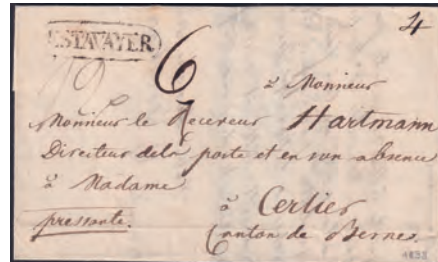 ESTAVAYER
4
6
à Monsieur
Monsieur le Receveur Hartmann
Directeur dela poste et en son absence
à Madame
à Cerlier
pressante.
Canton de Berne
1838